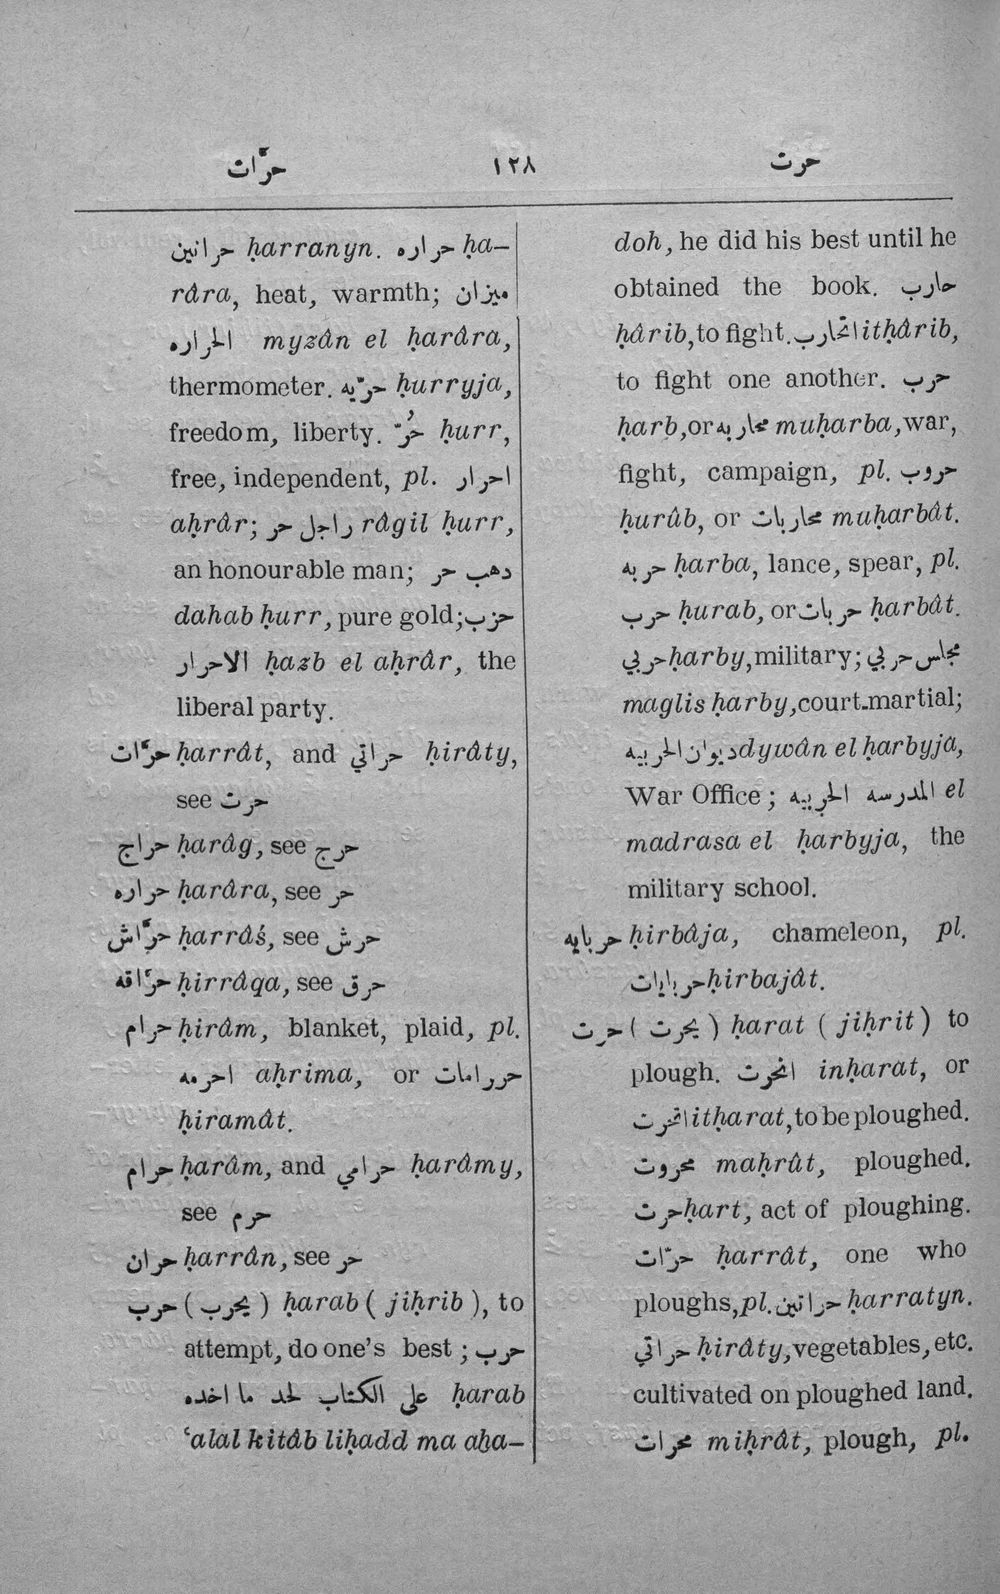 حرّات ١٢٨ حرت
حرانين ḥarranyn. حراره ḥa-
râra, heat, warmth; ميزان
الحراره myzân el ḥarâra,
thermometer. حرّيه ḥurryja,
freedom, liberty. حُرّ ḥurr,
free, independent, pl. احرار
aḥrâr; راجل حر râgil ḥurr,
an honourable man; دهب حر
dahab ḥurr, pure gold; حزب
الاحرار ḥazb el aḥrâr, the
liberal party.
حرّات ḥarrât, and حراتي ḥirâty,
see حرت
حراج ḥarâg, see حرج
حراره ḥarâra, see حر
حرّاش ḥarrâś, see حرش
حرّاقه ḥirrâqa, see حرق
حرام ḥirâm, blanket, plaid, pl.
احرمه aḥrima, or حررامات
ḥiramât.
حرام ḥarâm, and حرامي ḥarâmy,
see حرم
حران ḥarrân, see حر
حرب (يحرب) ḥarab (jiḥrib), to
attempt, do one's best; حرب
على الكتاب لحد ما اخده ḥarab
‘alal kitâb liḥadd ma aḫa-
doh, he did his best until he
obtained the book. حارب
ḥârib, to fight. اتحارب itḥârib,
to fight one another. حرب
ḥarb, or محاربه muḥarba, war,
fight, campaign, pl. حروب
ḥurûb, or محاربات muḥarbât.
حربه ḥarba, lance, spear, pl.
حرب ḥurab, or حربات ḥarbât.
حربي ḥarby, military; مجلس حربي
maglis ḥarby, court-martial;
ديوان الحربيه dywân el ḥarbyja,
War Office; المدرسه الحربيه el
madrasa el ḥarbyja, the
military school.
حربايه ḥirbâja, chameleon, pl.
حربايات ḥirbajât.
حرت (يحرت) ḥarat (jiḥrit) to
plough. انحرت inḥarat, or
اتحرت itḥarat, to be ploughed.
محروت maḥrût, ploughed.
حرت ḥart, act of ploughing.
حرّات ḥarrât, one who
ploughs, pl. حراتين ḥarratyn.
حراتي ḥirâty, vegetables, etc.
cultivated on ploughed land.
محرات miḥrât, plough, pl.